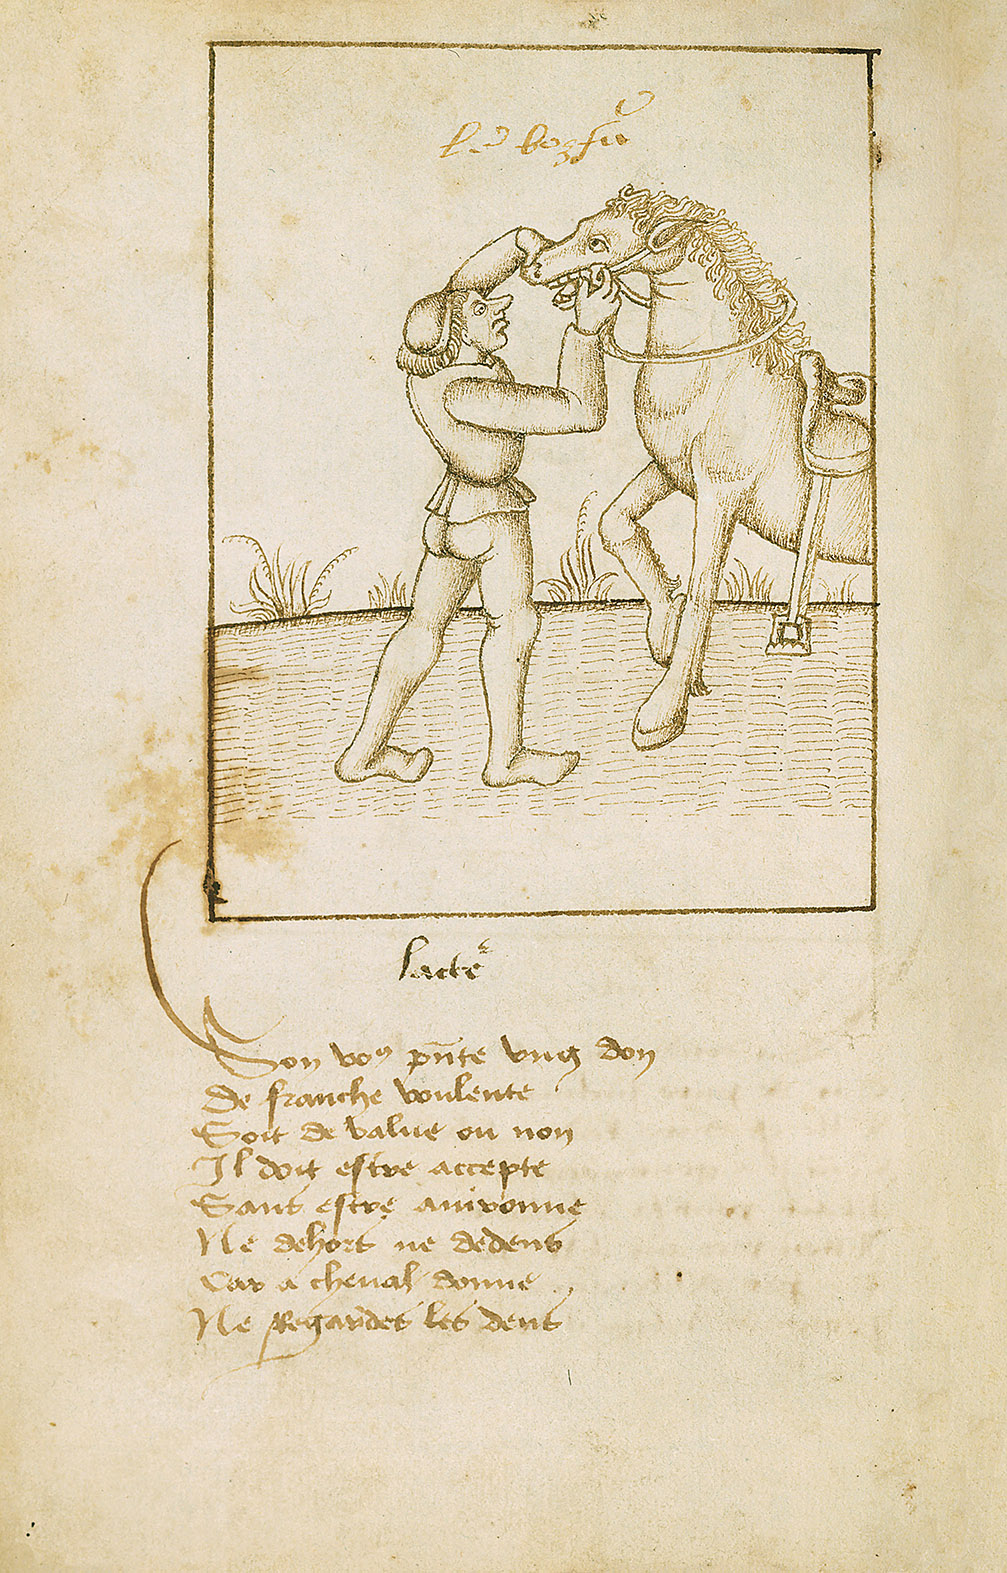 lacteꝰ
Son voꝰ pn̄te vng don
De franche voulente
Soit de value ou non
Il doit estre accepte
Sans estre auironne
Ne dehors ne dedens
Car a cheual donne
Ne Regardes les dens